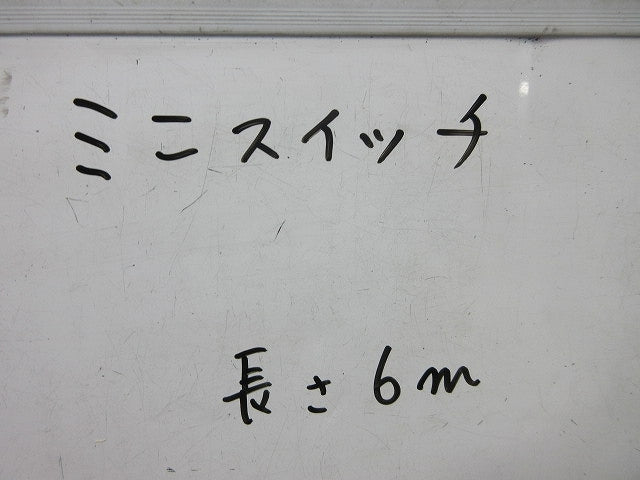 ミニスイッチ
長さ6m